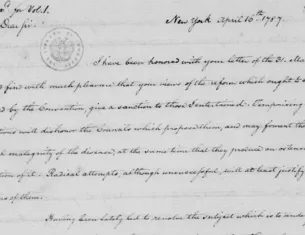 for Vol. 1.
Dear Sir
New York April 16th. 1787.
I have been honored with your letter of the 31. Ma
find with much pleasure that your views of the reform which ought to
d by the Convention, give a sanction to those I entertained. Temporising
tions will dishonor the Councils which propose them, and may foment the
l malignity of the disease, at the same time that they produce an ostens
tion of it. Radical attempts, although unsuccessful, will at least justify
rs of them.
Having been lately led to revolve the subject which is to under